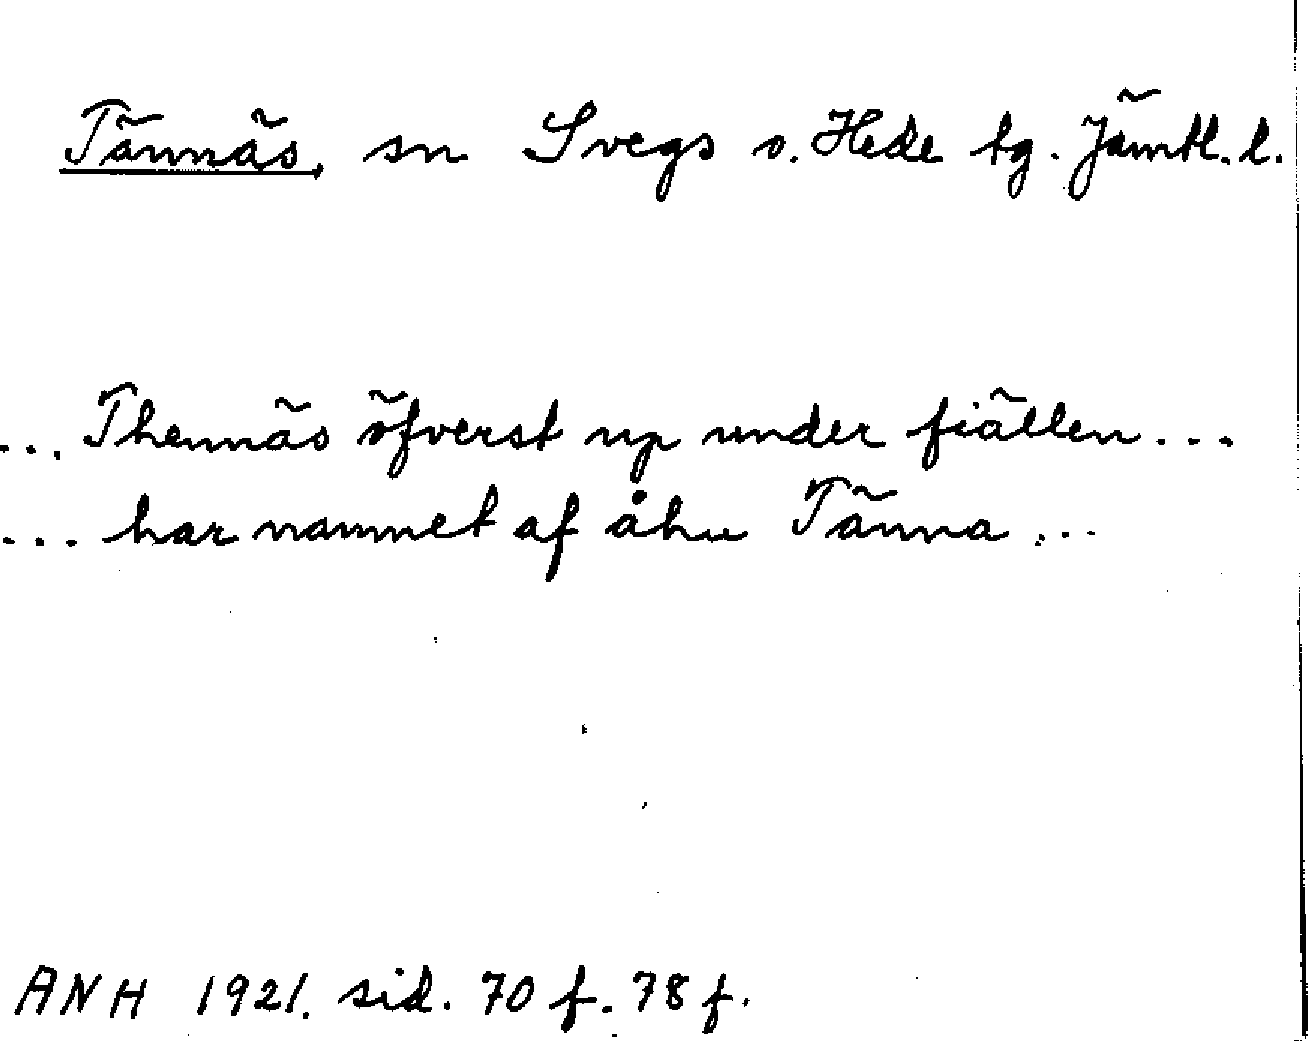 Tännäs, sn Svegs o. Hede tg. Jämtl. l.
... Thennäs öfverst up under fiällen ...
... har namnet af åhn Tänna ...
ANH 1921. sid. 70 f. 78 f.